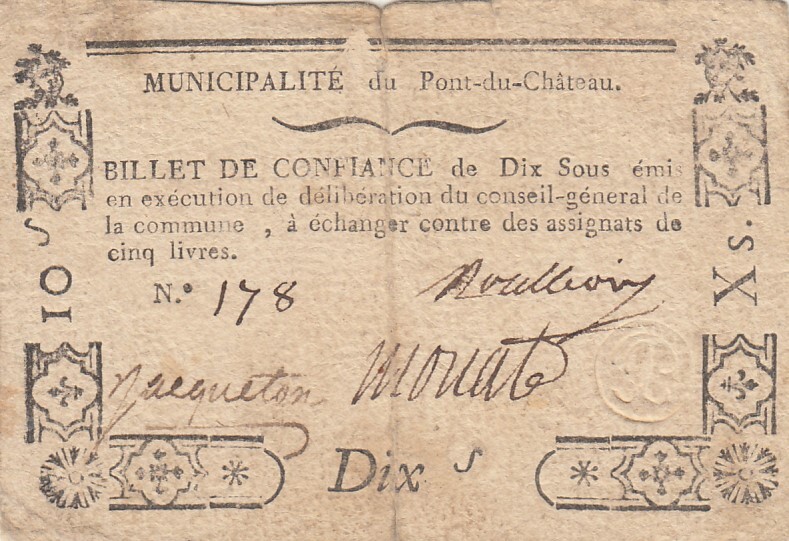 MUNICIPALITÉ du Pont-du-Château.
BILLET DE CONFIANCE de Dix Sous émis
en exécution de délibération du conseil-géneral de
la commune , à échanger contre des assignats de
cinq livres.
N.° 178
Jacqueton Monat
10 S
X s.
Dix S